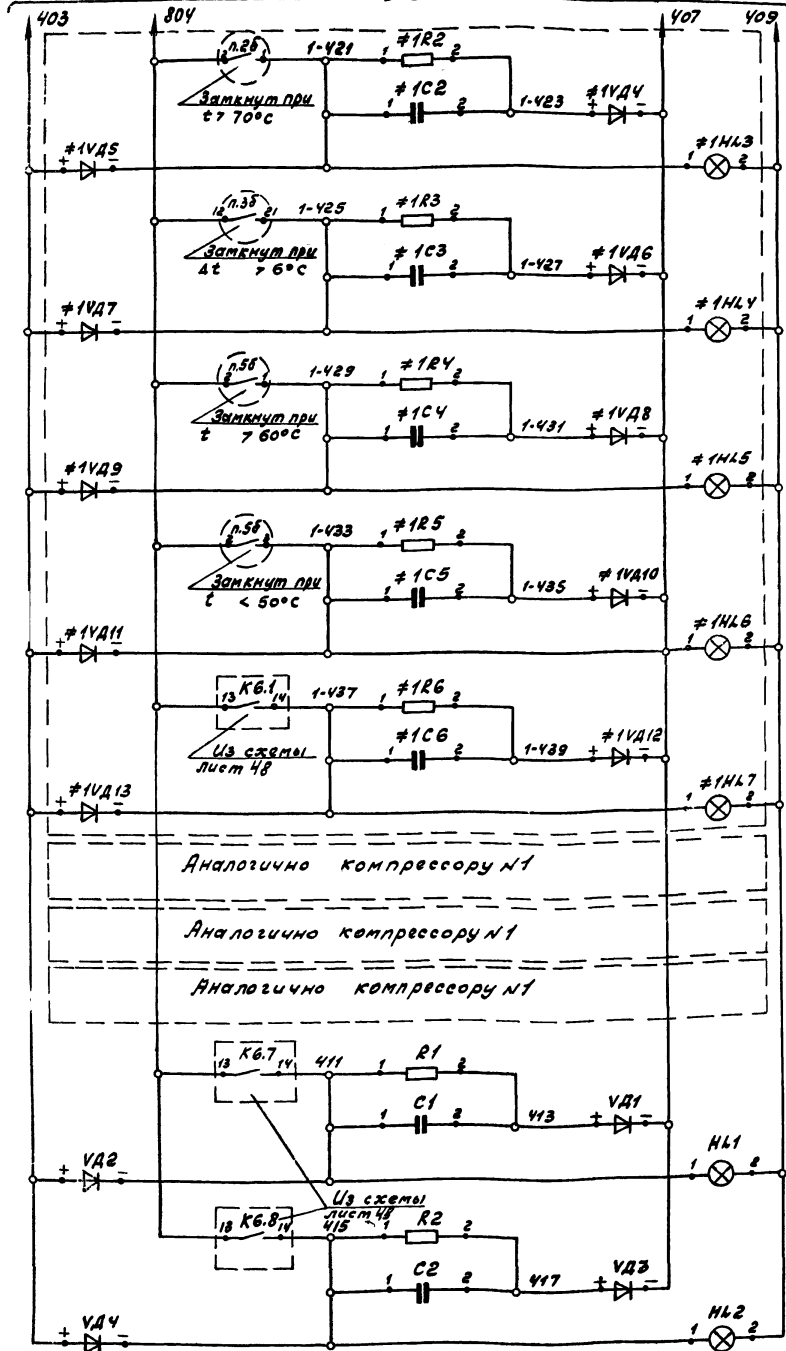 403 804 407 409
п.2б 1-421 1 ≠1R2 2
2 1
Замкнут при
t > 70°C
1 ≠1C2 2 1-423 + ≠1VД4 -
+ ≠1VД5 - 1 ≠1HL3 2
п.3б 1-425 1 ≠1R3 2
12 21
Замкнут при
Δt > 6°C
1 ≠1C3 2 1-427 + ≠1VД6 -
+ ≠1VД7 - 1 ≠1HL4 2
п.5б 1-429 1 ≠1R4 2
2 1
Замкнут при
t > 60°C
1 ≠1C4 2 1-431 + ≠1VД8 -
+ ≠1VД9 - 1 ≠1HL5 2
п.5б 1-433 1 ≠1R5 2
2 3
Замкнут при
t < 50°C
1 ≠1C5 2 1-435 + ≠1VД10 -
+ ≠1VД11 - 1 ≠1HL6 2
13 K6.1 14 1-437 1 ≠1R6 2
Из схемы
лист 48
1 ≠1C6 2 1-439 + ≠1VД12 -
+ ≠1VД13 - 1 ≠1HL7 2
Аналогично компрессору N1
Аналогично компрессору N1
Аналогично компрессору N1
13 K6.7 14 411 1 R1 2
1 C1 2 413 + VД1 -
+ VД2 - 1 HL1 2
Из схемы
лист 48
13 K6.8 14 415 1 R2 2
1 C2 2 417 + VД3 -
+ VД4 - 1 HL2 2